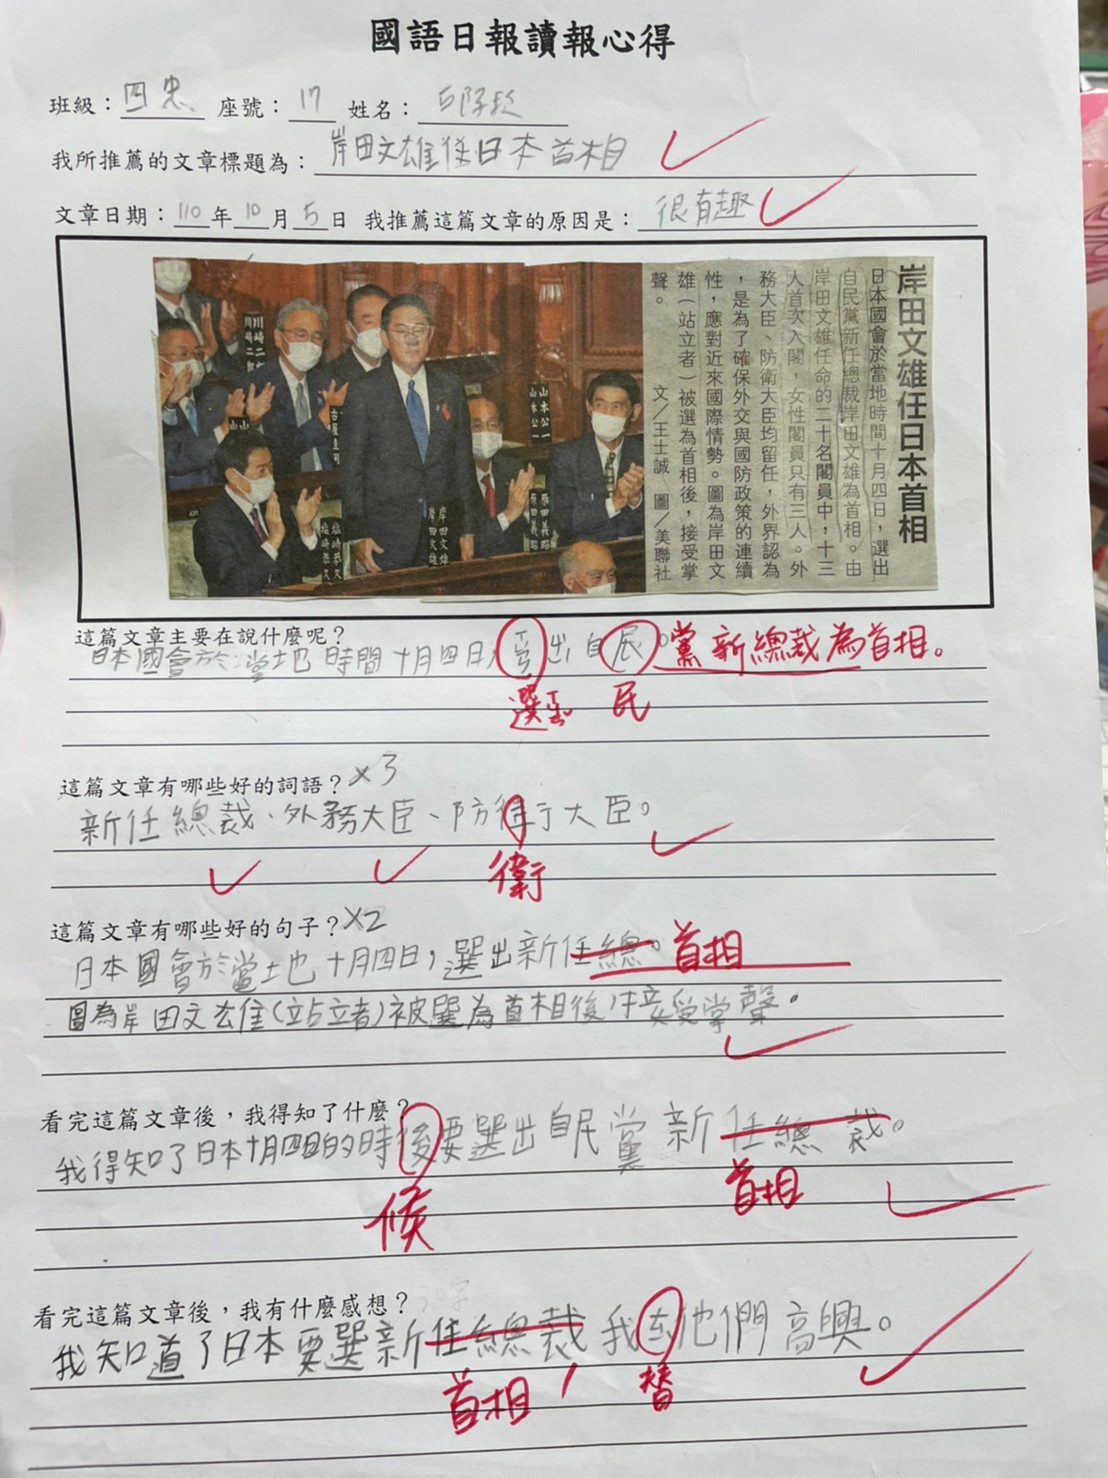 國語日報讀報心得
班級：四忠 座號：17 姓名：
我所推薦的文章標題為：岸田文雄任日本首相
文章日期：110年10月5日 我推薦這篇文章的原因是：很有趣
岸田文雄任日本首相
日本國會於當地時間十月四日，選出
自民黨新任總裁岸田文雄為首相。由
岸田文雄任命的二十名閣員中，十三
人首次入閣，女性閣員只有三人。外
務大臣、防衛大臣均留任，外界認為
，是為了確保外交與國防政策的連續
性，應對近來國際情勢。圖為岸田文
雄（站立者）被選為首相後，接受掌
聲。 文／王士誠 圖／美聯社
山本公一
山本公一
岸田文雄
岸田文雄
原田義昭
原田義昭
塩崎恭久
塩崎恭久
這篇文章主要在說什麼呢？
日本國會於當地時間十月四日，出自。黨新總裁為首相。
選 民
這篇文章有哪些好的詞語？×3
新任總裁、外務大臣、防大臣。
衛
這篇文章有哪些好的句子？×2
日本國會於當地十月四日，選出新任總。首相
圖為岸田文雄(站立者)被選為首相後，接受掌聲。
看完這篇文章後，我得知了什麼？
我得知了日本十月四日的時後要選出自民黨新任總裁。
候 首相
看完這篇文章後，我有什麼感想？
我知道了日本要選新任總裁我他們高興。
首相， 替